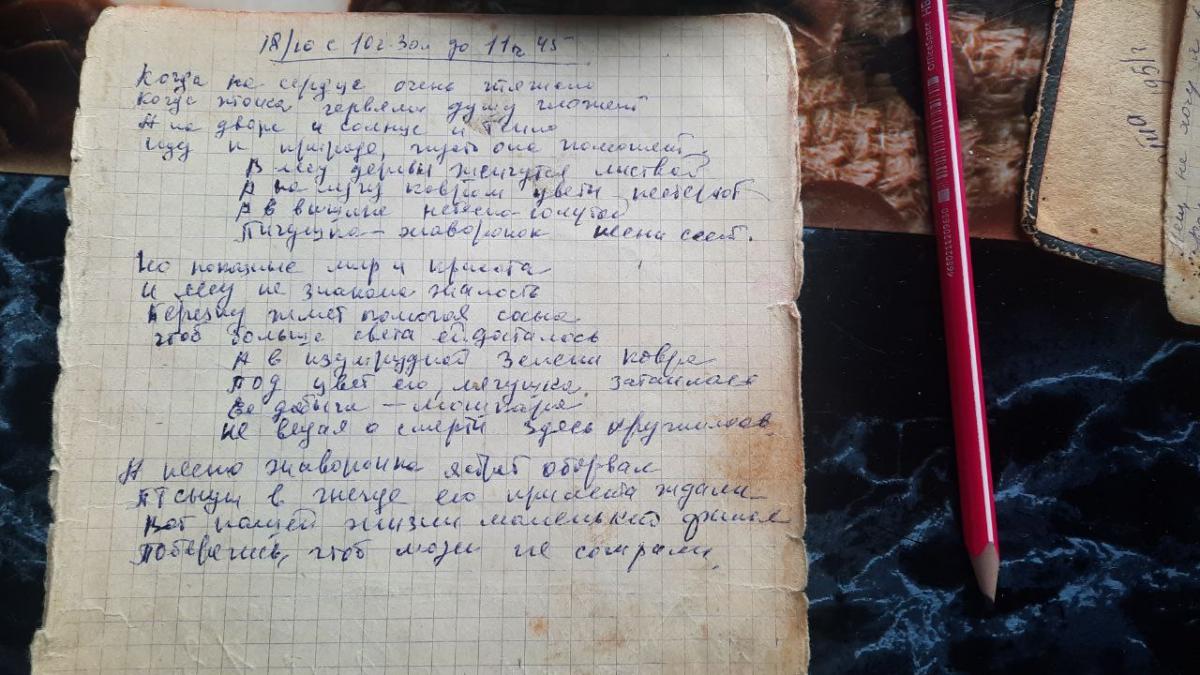 18/10 с 10ч.30м до 11ч 45
Когда на сердце очень тяжело
Когда тоска червями душу гложет
А на дворе и солнце и тепло
Иду к природе, пусть она поможет.
В лесу деревья шепчутся листвой
А на лугу ковром цветы
А в вышине небесно-голубой
Пичушка-жаворонок песни
Но показные мир и красота
И лесу не знакома жалость
Березку жмет сосна
чтоб больше света ей досталось
А в изумрудной зелени ковра
Под цвет его лягушка затаилась
Ее добыча - мошкара
не ведая о смерти здесь кружилась.
А песню жаворонка ястреб оборвал
Птенцы в гнезде его прилета ждали
Вот нашей жизни маленький
Поберегись, чтоб не сожрали.
HB
OfficeSpace
4680211209630